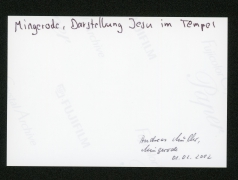 Mingerode, Darstellung Jesu im Tempel
Andreas Müller,
Mingerode